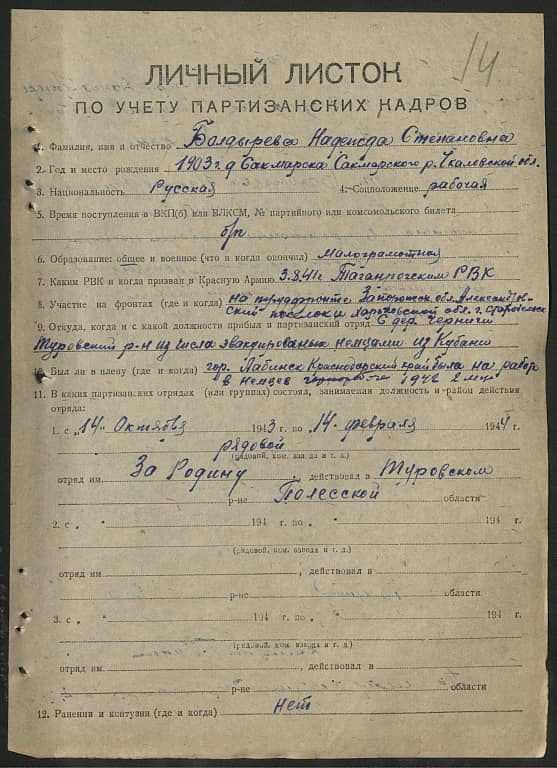 14
ЛИЧНЫЙ ЛИСТОК
ПО УЧЕТУ ПАРТИЗАНСКИХ КАДРОВ
1. Фамилия, имя и отчество Болдырева Надежда Степановна
2. Год и место рождения 1903 г. д Сакмарска Сакмарского р. Чкаловской обл.
3. Национальность Русская 4. Соцположение рабочая
5. Время поступления в ВКП(б) или ВЛКСМ, № партийного или комсомольского билета
б/п
6. Образование: общее и военное (что и когда окончил) Малограмотная
7. Каким РВК и когда призван в Красную Армию 3.8.41 г Таганрогским РВК
8. Участие на фронтах (где и когда) на трудфронте Запорожск. обл. Александров
ский поселок и Харьковской обл. г.
9. Откуда, когда и с какой должности прибыл в партизанский отряд С дер. Черничи
Туровский р-н из числа эвакуированых немцами из Кубани
10. Был ли в плену (где и когда) гор. Лабинск Краснодарский край была на работе
в немцев 1942 2 м-ца
11. В каких партизанских отрядах (или группах) состоял, занимаемая должность и район действия
отряда:
1. с „14" Октября 1943 г. по „14" февраля 1944 г.
рядовой
(рядовой, ком. взвода и т. д.)
отряд им. За Родину действовал в Туровском
р-не Полесской области
2. с „ " 194 г. по „ " 194 г.
(рядовой, ком. взвода и т. д.)
отряд им. , действовал в
р-не области
3. с „ " 194 г. по „ " 194 г.
(рядовой, ком. взвода и т. д.)
отряд им. , действовал в
р-не области
12. Ранения и контузии (где и когда) Нет